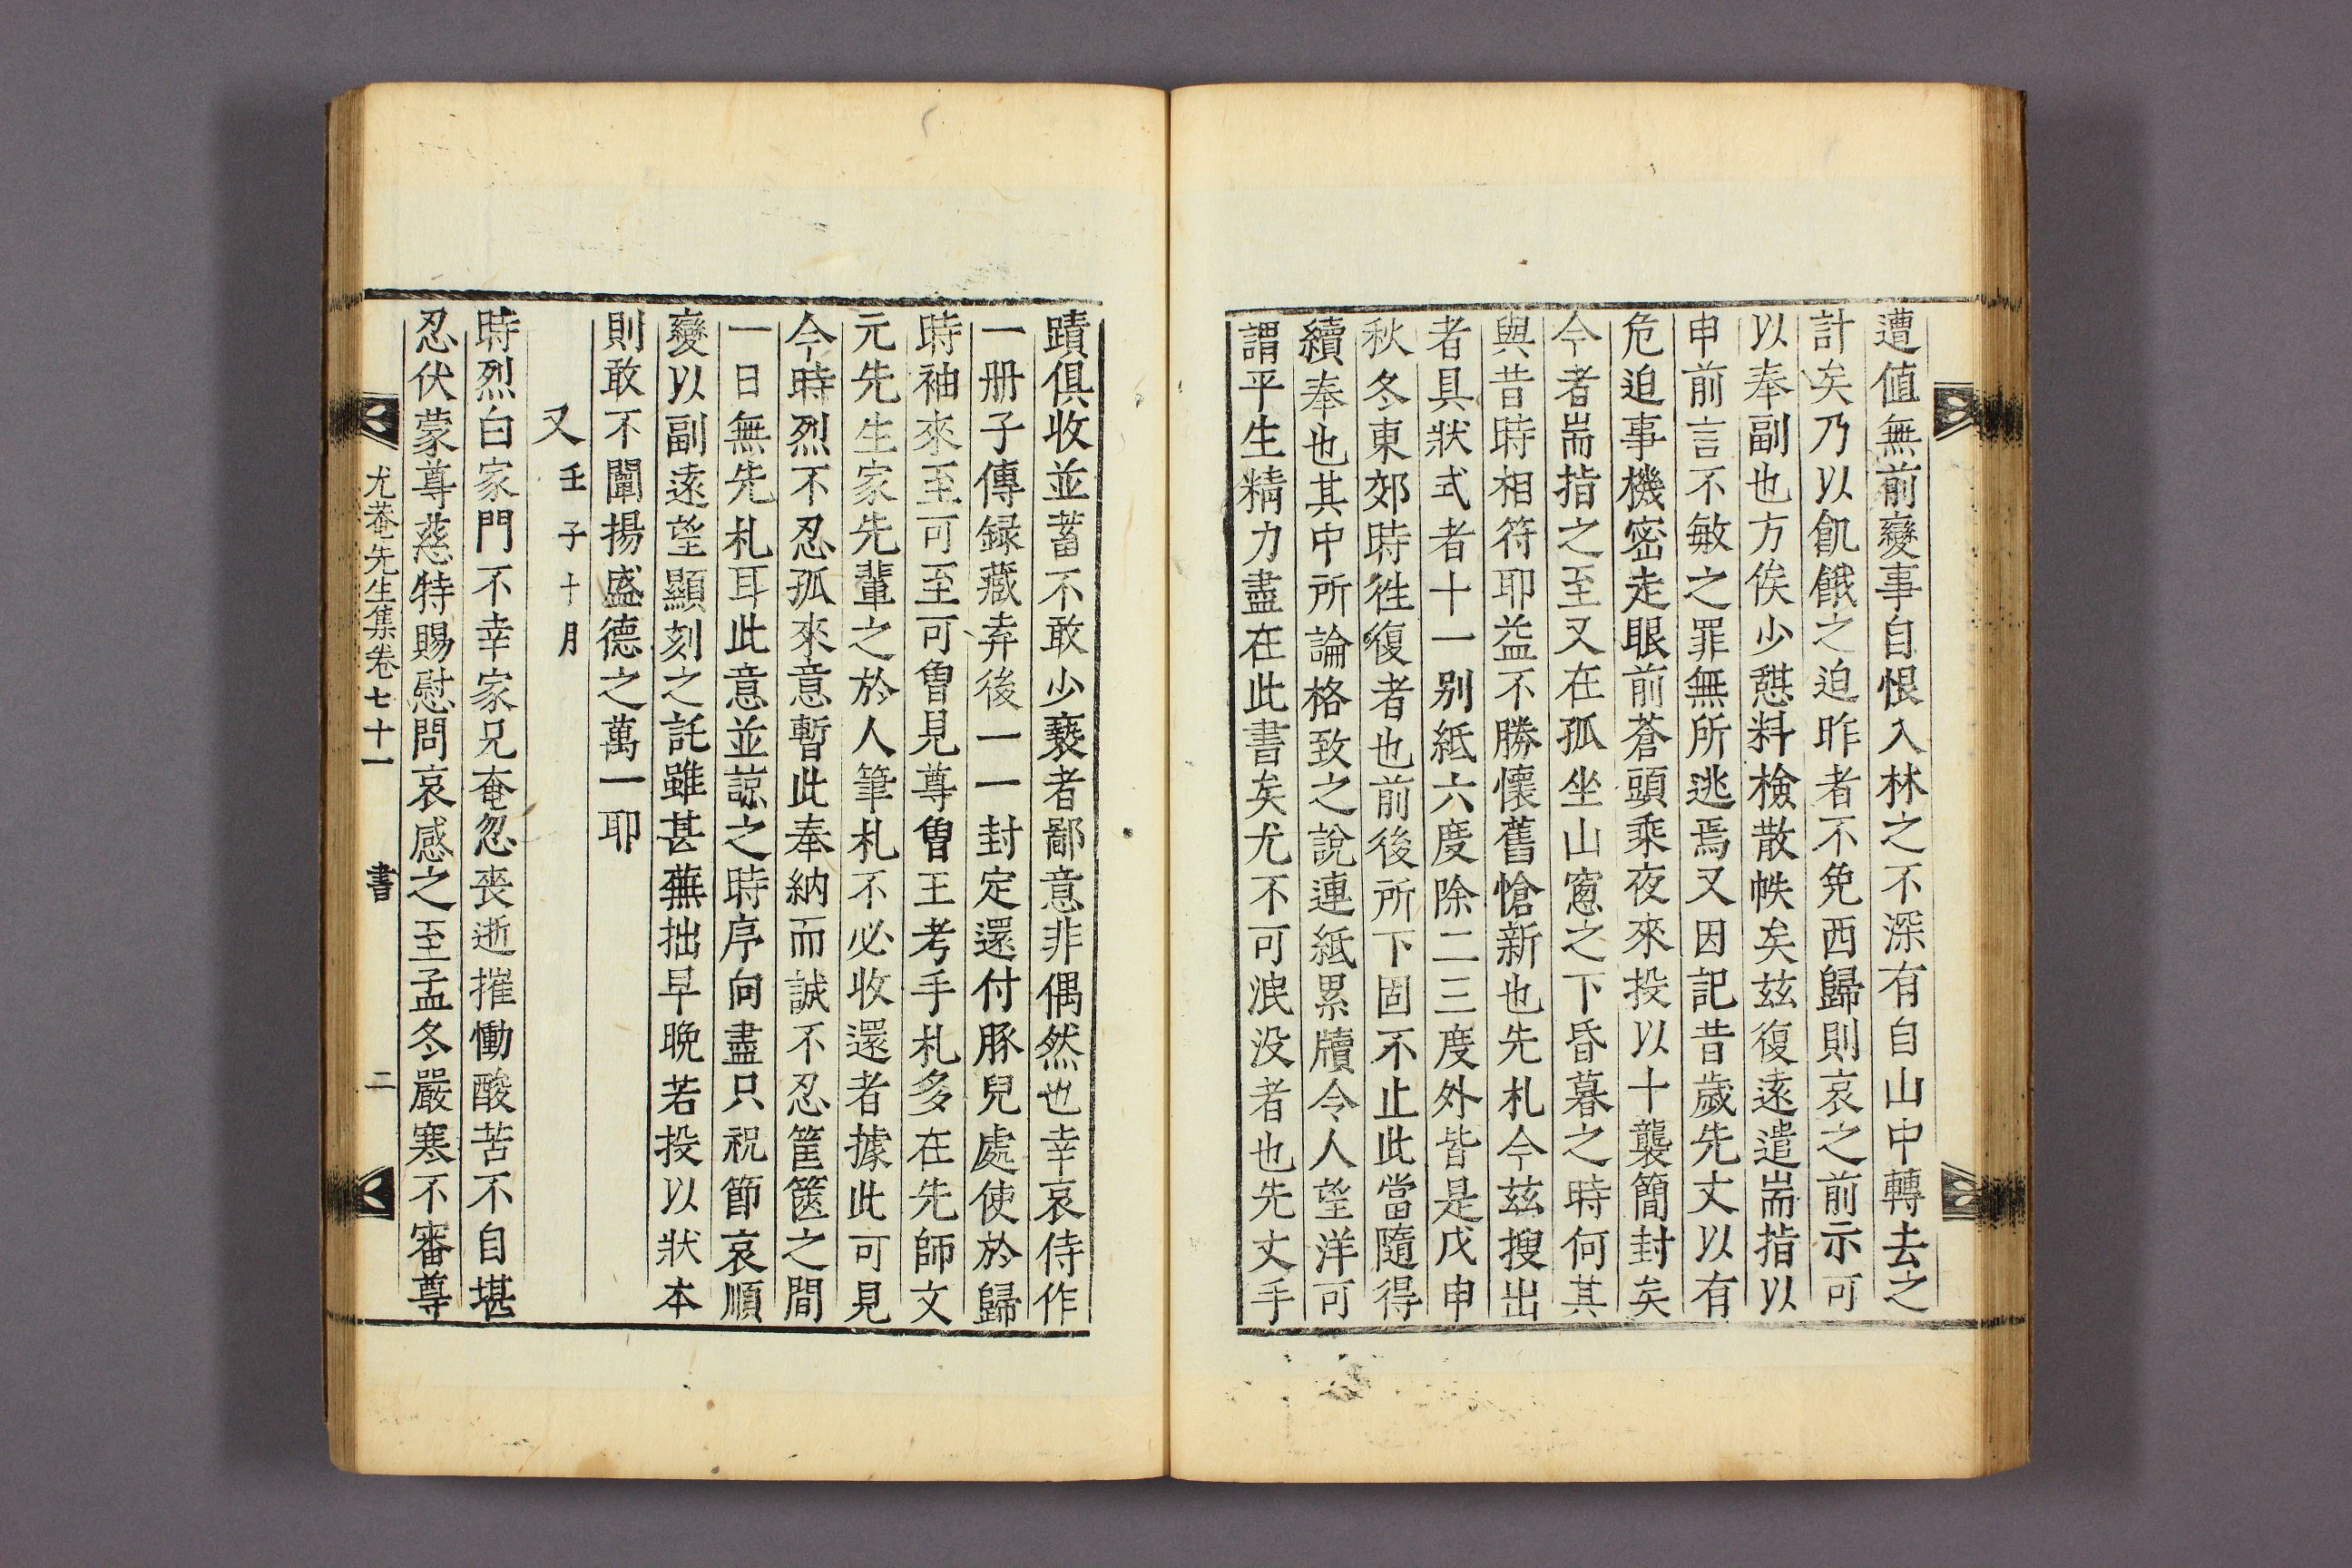 遭値無前變事自恨入林之不深有自山中轉去之
計矣乃以飢餓之迫昨者不免西歸則哀之前示可
以奉副也方俟少憇料檢散帙矣玆復遠遣耑指以
申前言不敏之罪無所逃焉又因記昔歲先丈以有
危迫事機密走眼前蒼頭乘夜來投以十襲簡封矣
今者耑指之至又在孤坐山窻之下昏暮之時何其
與昔時相符耶益不勝懷舊愴新也先札今玆搜出
者具狀式者十一別紙六度除二三度外皆是戊申
秋冬東郊時徃復者也前後所下固不止此當隨得
續奉也其中所論格致之說連紙累牘令人望洋可
謂平生精力盡在此書矣尤不可泯没者也先丈手
蹟俱收並蓄不敢少褻者鄙意非偶然也幸哀侍作
一册子傳録藏弆後一一封定還付豚兒處使於歸
時袖來至可至可曾見尊曾王考手札多在先師文
元先生家先輩之於人筆札不必收還者據此可見
今時烈不忍孤來意暫此奉納而誠不忍筐篋之間
一日無先札耳此意並諒之時序向盡只祝節哀順
變以副遠望顯刻之託雖甚蕪拙早晩若投以狀本
則敢不闡揚盛德之萬一耶
又 壬子十月
時烈白家門不幸家兄奄忽喪逝摧慟酸苦不自堪
忍伏蒙尊慈特賜慰問哀感之至孟冬嚴寒不審尊
尤菴先生集卷七十一 書 二